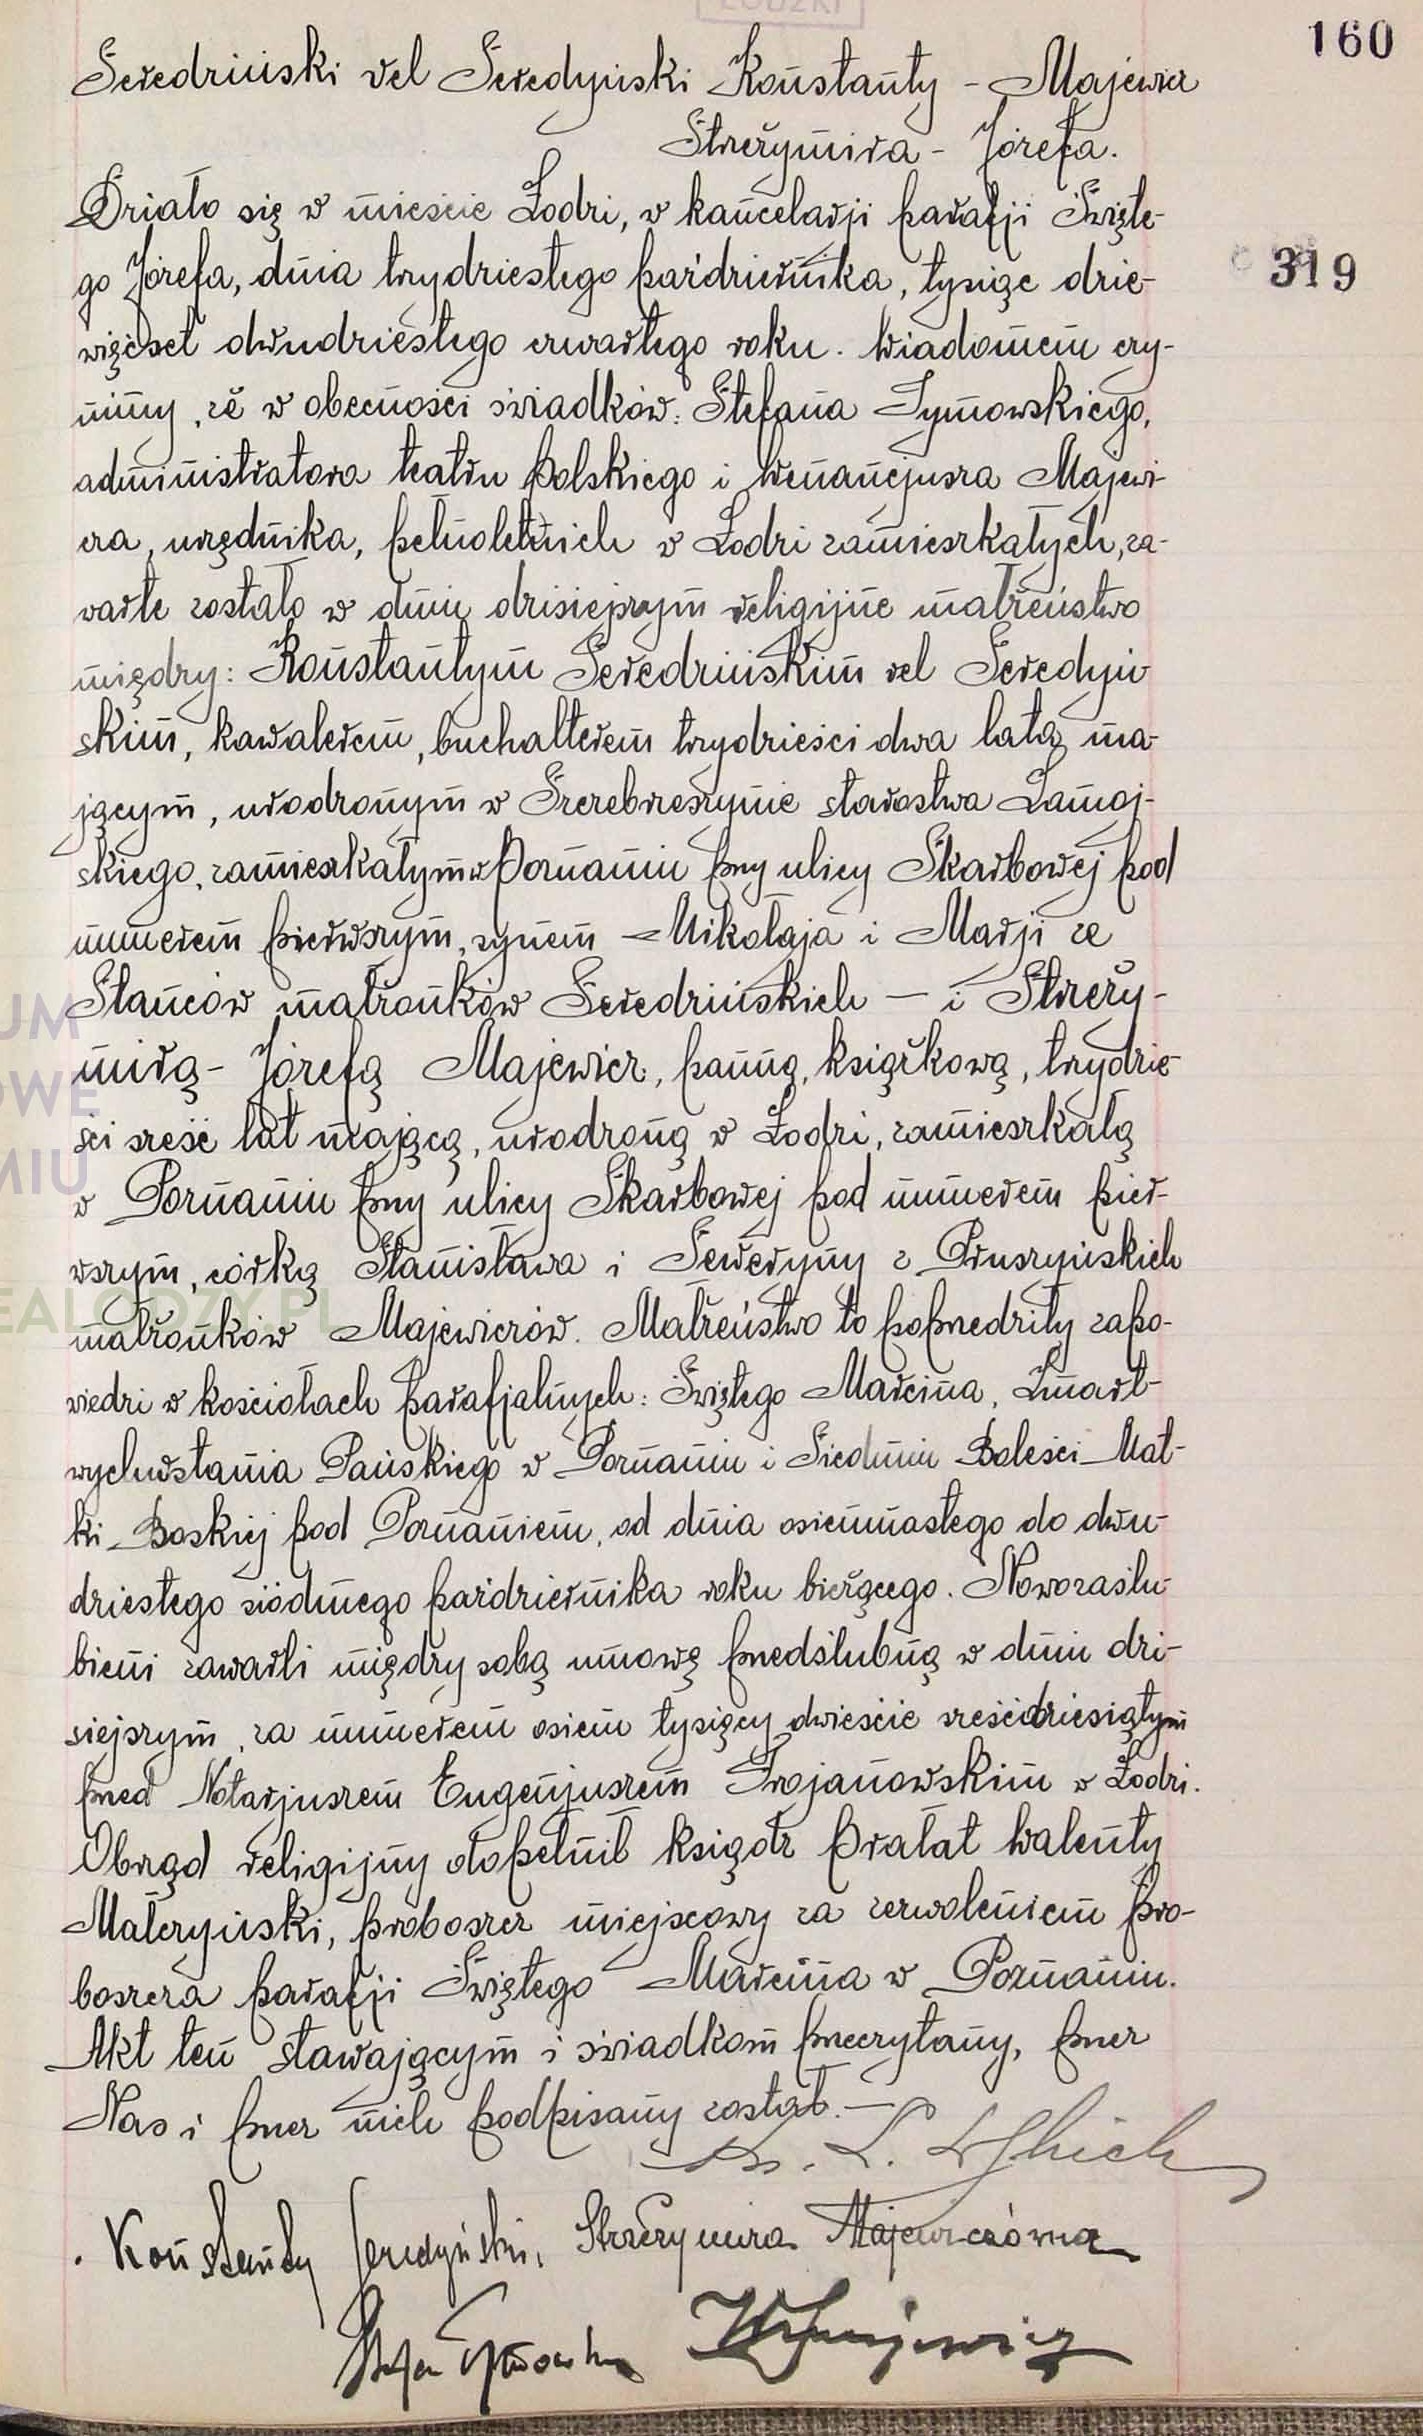 160
Seredziński vel Seredyński Konstanty - Majewicz
Strzeżymira - Józefa.
Działo się w mieście Łodzi, w kancelarji parafji Święte-
go Józefa, dnia trzydziestego października, tysiąc dzie-
319
więćset dwudziestego czwartego roku. Wiadomem czy-
nimy, że w obecności świadków: Stefana Tymowskiego,
administratora teatru Polskiego i Wenancjusza Majewi-
cza, urzędnika, pełnoletnich w Łodzi zamieszkałych, za-
warte zostało w dniu dzisiejszym religijne małżeństwo
między: Konstantym Seredzińskim vel Seredyń-
skim, kawalerem, buchalterem trzydzieści dwa lata ma-
jącym, urodzonym w Szczebrzeszynie starostwa Zamoj-
skiego, zamieszkałym w Poznaniu przy ulicy Skarbowej pod
numerem pierwszym, synem Mikołaja i Marji ze
Stańców małżonków Seredzińskich — i Strzeży-
mirą - Józefą Majewicz, panną, książkową, trzydzie-
ści sześć lat mającą, urodzoną w Łodzi, zamieszkałą
w Poznaniu przy ulicy Skarbowej pod numerem pier-
wszym, córką Stanisława i Seweryny z Pruszyńskich
małżonków Majewiczów. Małżeństwo to poprzedziły zapo-
wiedzi w kościołach parafjalnych: Świętego Marcina, Zmart-
wychwstania Pańskiego w Poznaniu i Siedmiu Boleści Mat-
ki Boskiej pod Poznaniem, od dnia osiemnastego do dwu-
dziestego siódmego października roku bieżącego. Nowozaślu-
bieni zawarli między sobą umowę przedślubną w dniu dzi-
siejszym, za numerem osiem tysięcy dwieście sześćdziesiątym
przed Notarjuszem Eugenjuszem Trojanowskim w Łodzi.
Obrząd religijny dopełnił ksiądz Prałat Walenty
Małczyński, proboszcz miejscowy za zezwoleniem pro-
boszcza parafji Świętego Marcina w Poznaniu.
Akt ten stawającym i świadkom przeczytany, przez
Nas i przez nich podpisany został. —
Ks.
Konstanty Seredyński, Strzeżymira Majewiczówna
Stefan Tymowski W. Majewicz